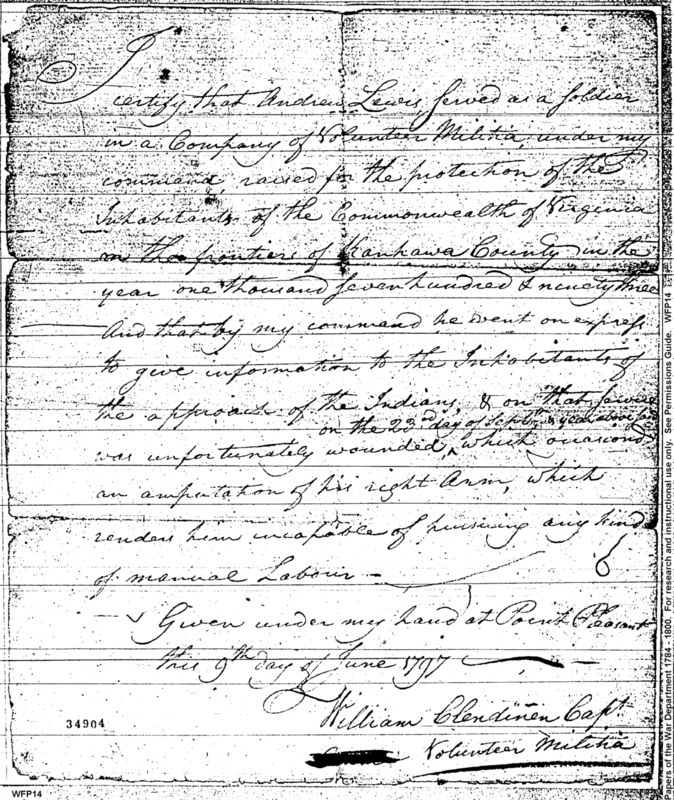 I
certify that Andrew Lewis, served as a soldier
in a Company of Volunteer Militia, under my
command, raised for the protection of the
Inhabitants of the Commonwealth of Virginia
on the frontiers of Kanhawa County in the
year one thousand seven hundred & ninety three
And that by my command he went on express
to give information to the Inhabitants of
the approach of the Indians, & on that service
on the 23d day of Septr. & year aforesaid
was unfortunately wounded, which occasioned
an amputation of his right Arm, which
renders him incapable of pursuing any kind
of manual Labour —
Given under my hand at Point Pleasant
this 9th day of June 1797
William Clendinen Capt.
Volunteer Militia
34904
WFP14
Papers of the War Department 1784 - 1800. For research and instructional use only. See Permissions Guide. WFP14